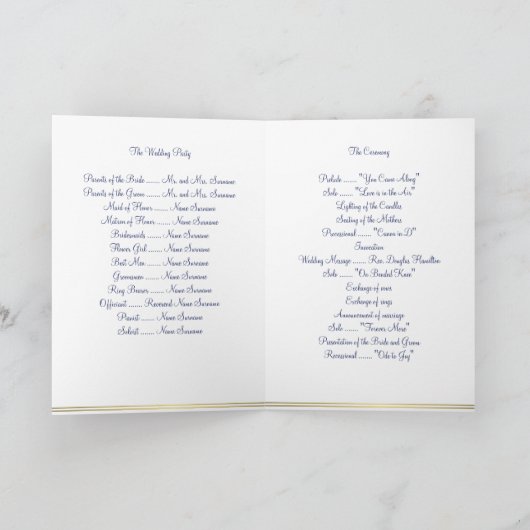 The Wedding Party
Parents of the Bride ....... Mr. and Mrs. Surname
Parents of the Groom ........ Mr. and Mrs. Surname
Maid of Honor ........ Name Surname
Matron of Honor ........ Name Surname
Bridesmaids ....... Name Surname
Flower Girl ........ Name Surname
Best Man ........ Name Surname
Groomsmen ........ Name Surname
Ring Bearer ........ Name Surname
Officiant ........ Reverend Name Surname
Pianist ........ Name Surname
Soloist ........ Name Surname
The Ceremony
Prelude ........ "You Came Along"
Solo ........ "Love is in the Air"
Lighting of the Candles
Seating of the Mothers
Processional ........ "Canon in D"
Invocation
Wedding Message ........ Rev. Douglas Hamilton
Solo ........ "On Bended Knee"
Exchange of vows
Exchange of rings
Announcement of marriage
Solo ........ "Forever More"
Presentation of the Bride and Groom
Recessional ........ "Ode to Joy"